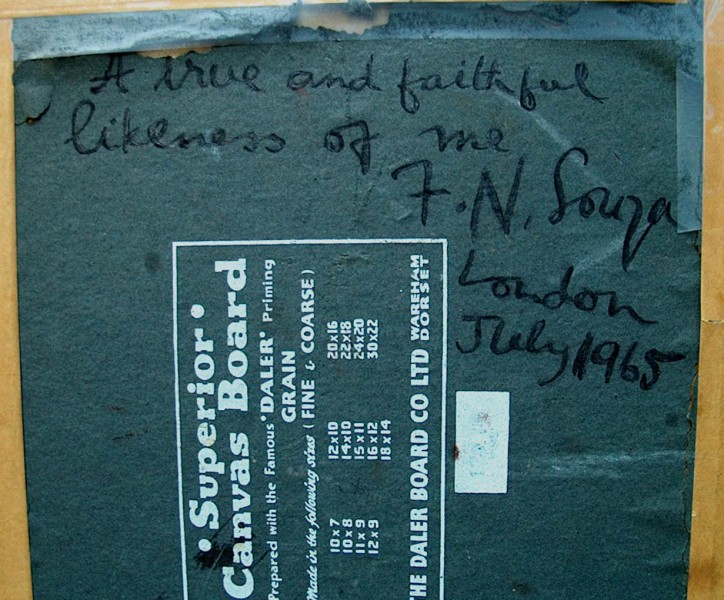 A true and faithful
likeness of me
F.N. Souza
London
July 1965
• Superior •
Canvas Board
Prepared with the Famous 'DALER' Priming
GRAIN
Made in the following sizes (FINE & COARSE)
10 x 7 12 x 10 20 x 16
10 x 8 14 x 10 22 x 18
11 x 9 15 x 11 24 x 20
12 x 9 16 x 12 30 x 22
18 x 14
THE DALER BOARD CO LTD WAREHAM
DORSET